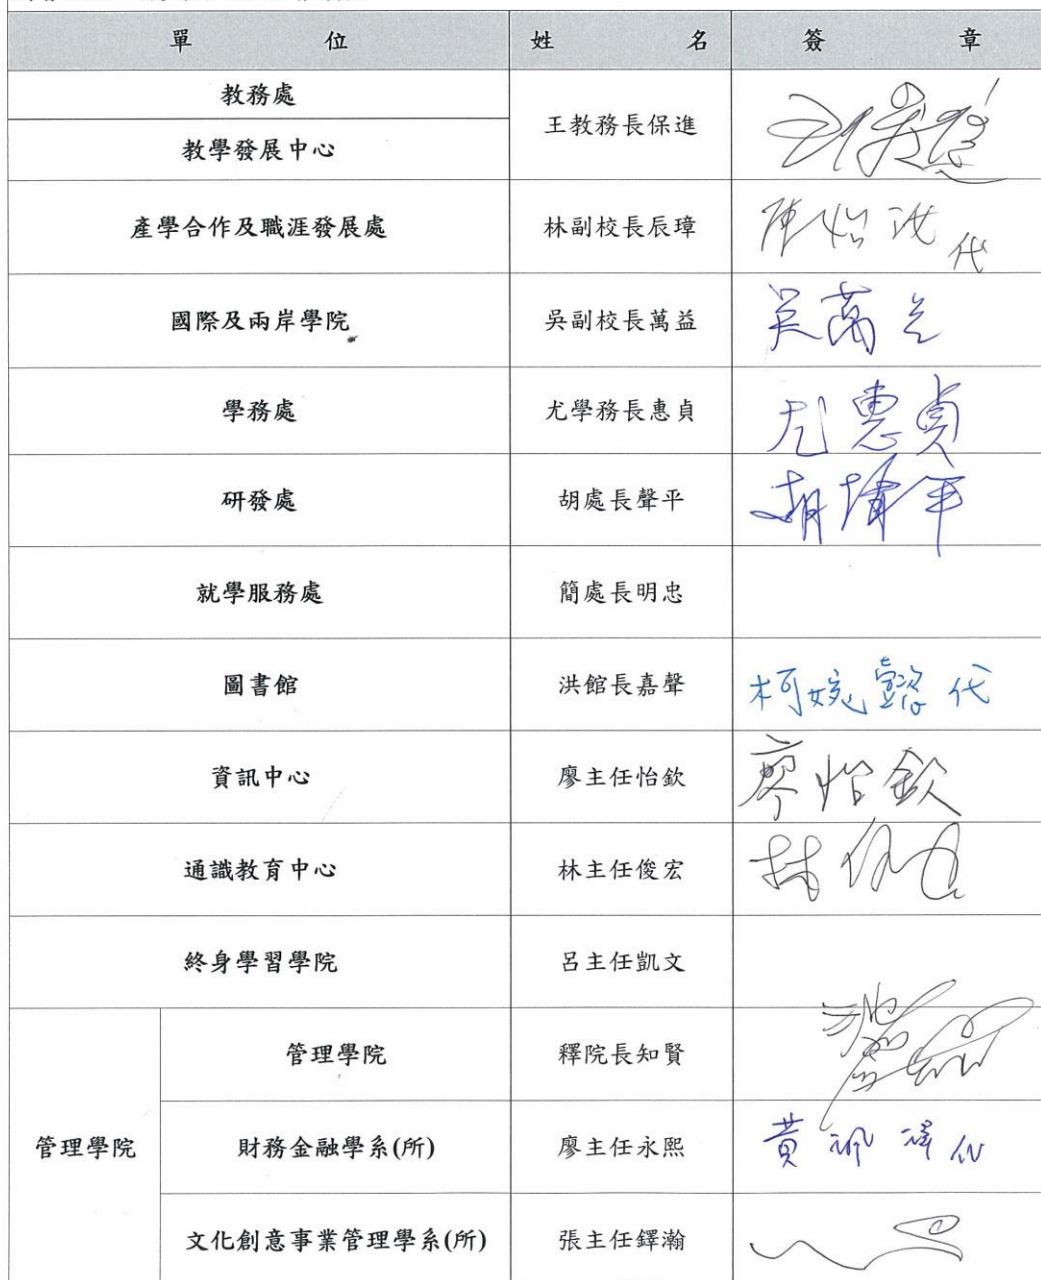 單 位 姓 名 簽 章
教務處
教學發展中心
王教務長保進
產學合作及職涯發展處 林副校長辰璋 代
國際及兩岸學院 吳副校長萬益 吳萬益
學務處 尤學務長惠貞 尤惠貞
研發處 胡處長聲平
就學服務處 簡處長明忠
圖書館 洪館長嘉聲 柯婉懿 代
資訊中心 廖主任怡欽 廖怡欽
通識教育中心 林主任俊宏
終身學習學院 呂主任凱文
管理學院 管理學院 釋院長知賢
財務金融學系(所) 廖主任永熙 黃 代
文化創意事業管理學系(所) 張主任鐸瀚